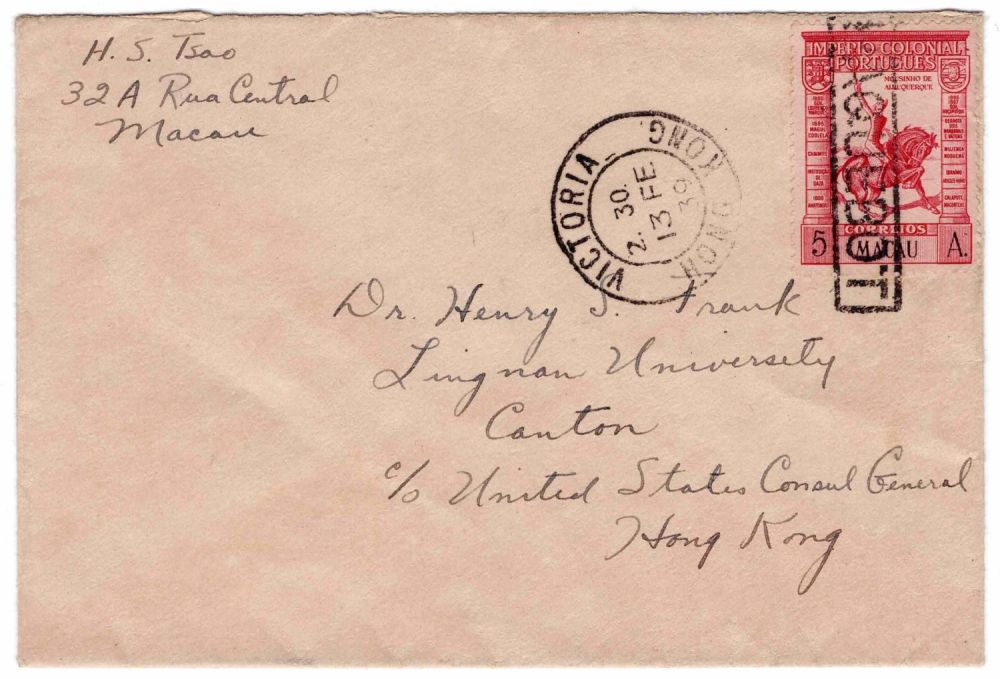 H. S. Tsao
32 A Rua Central
Macau
IMPERIO COLONIAL
PORTUGUES
MOUSINHO DE
ALBUQUERQUE
CORREIOS
5 MACAU A.
VICTORIA
HONG KONG
2. 30.
13 FE
39
Dr. Henry S. Frank
Lingnan University
Canton
c/o United States Consul General
Hong Kong